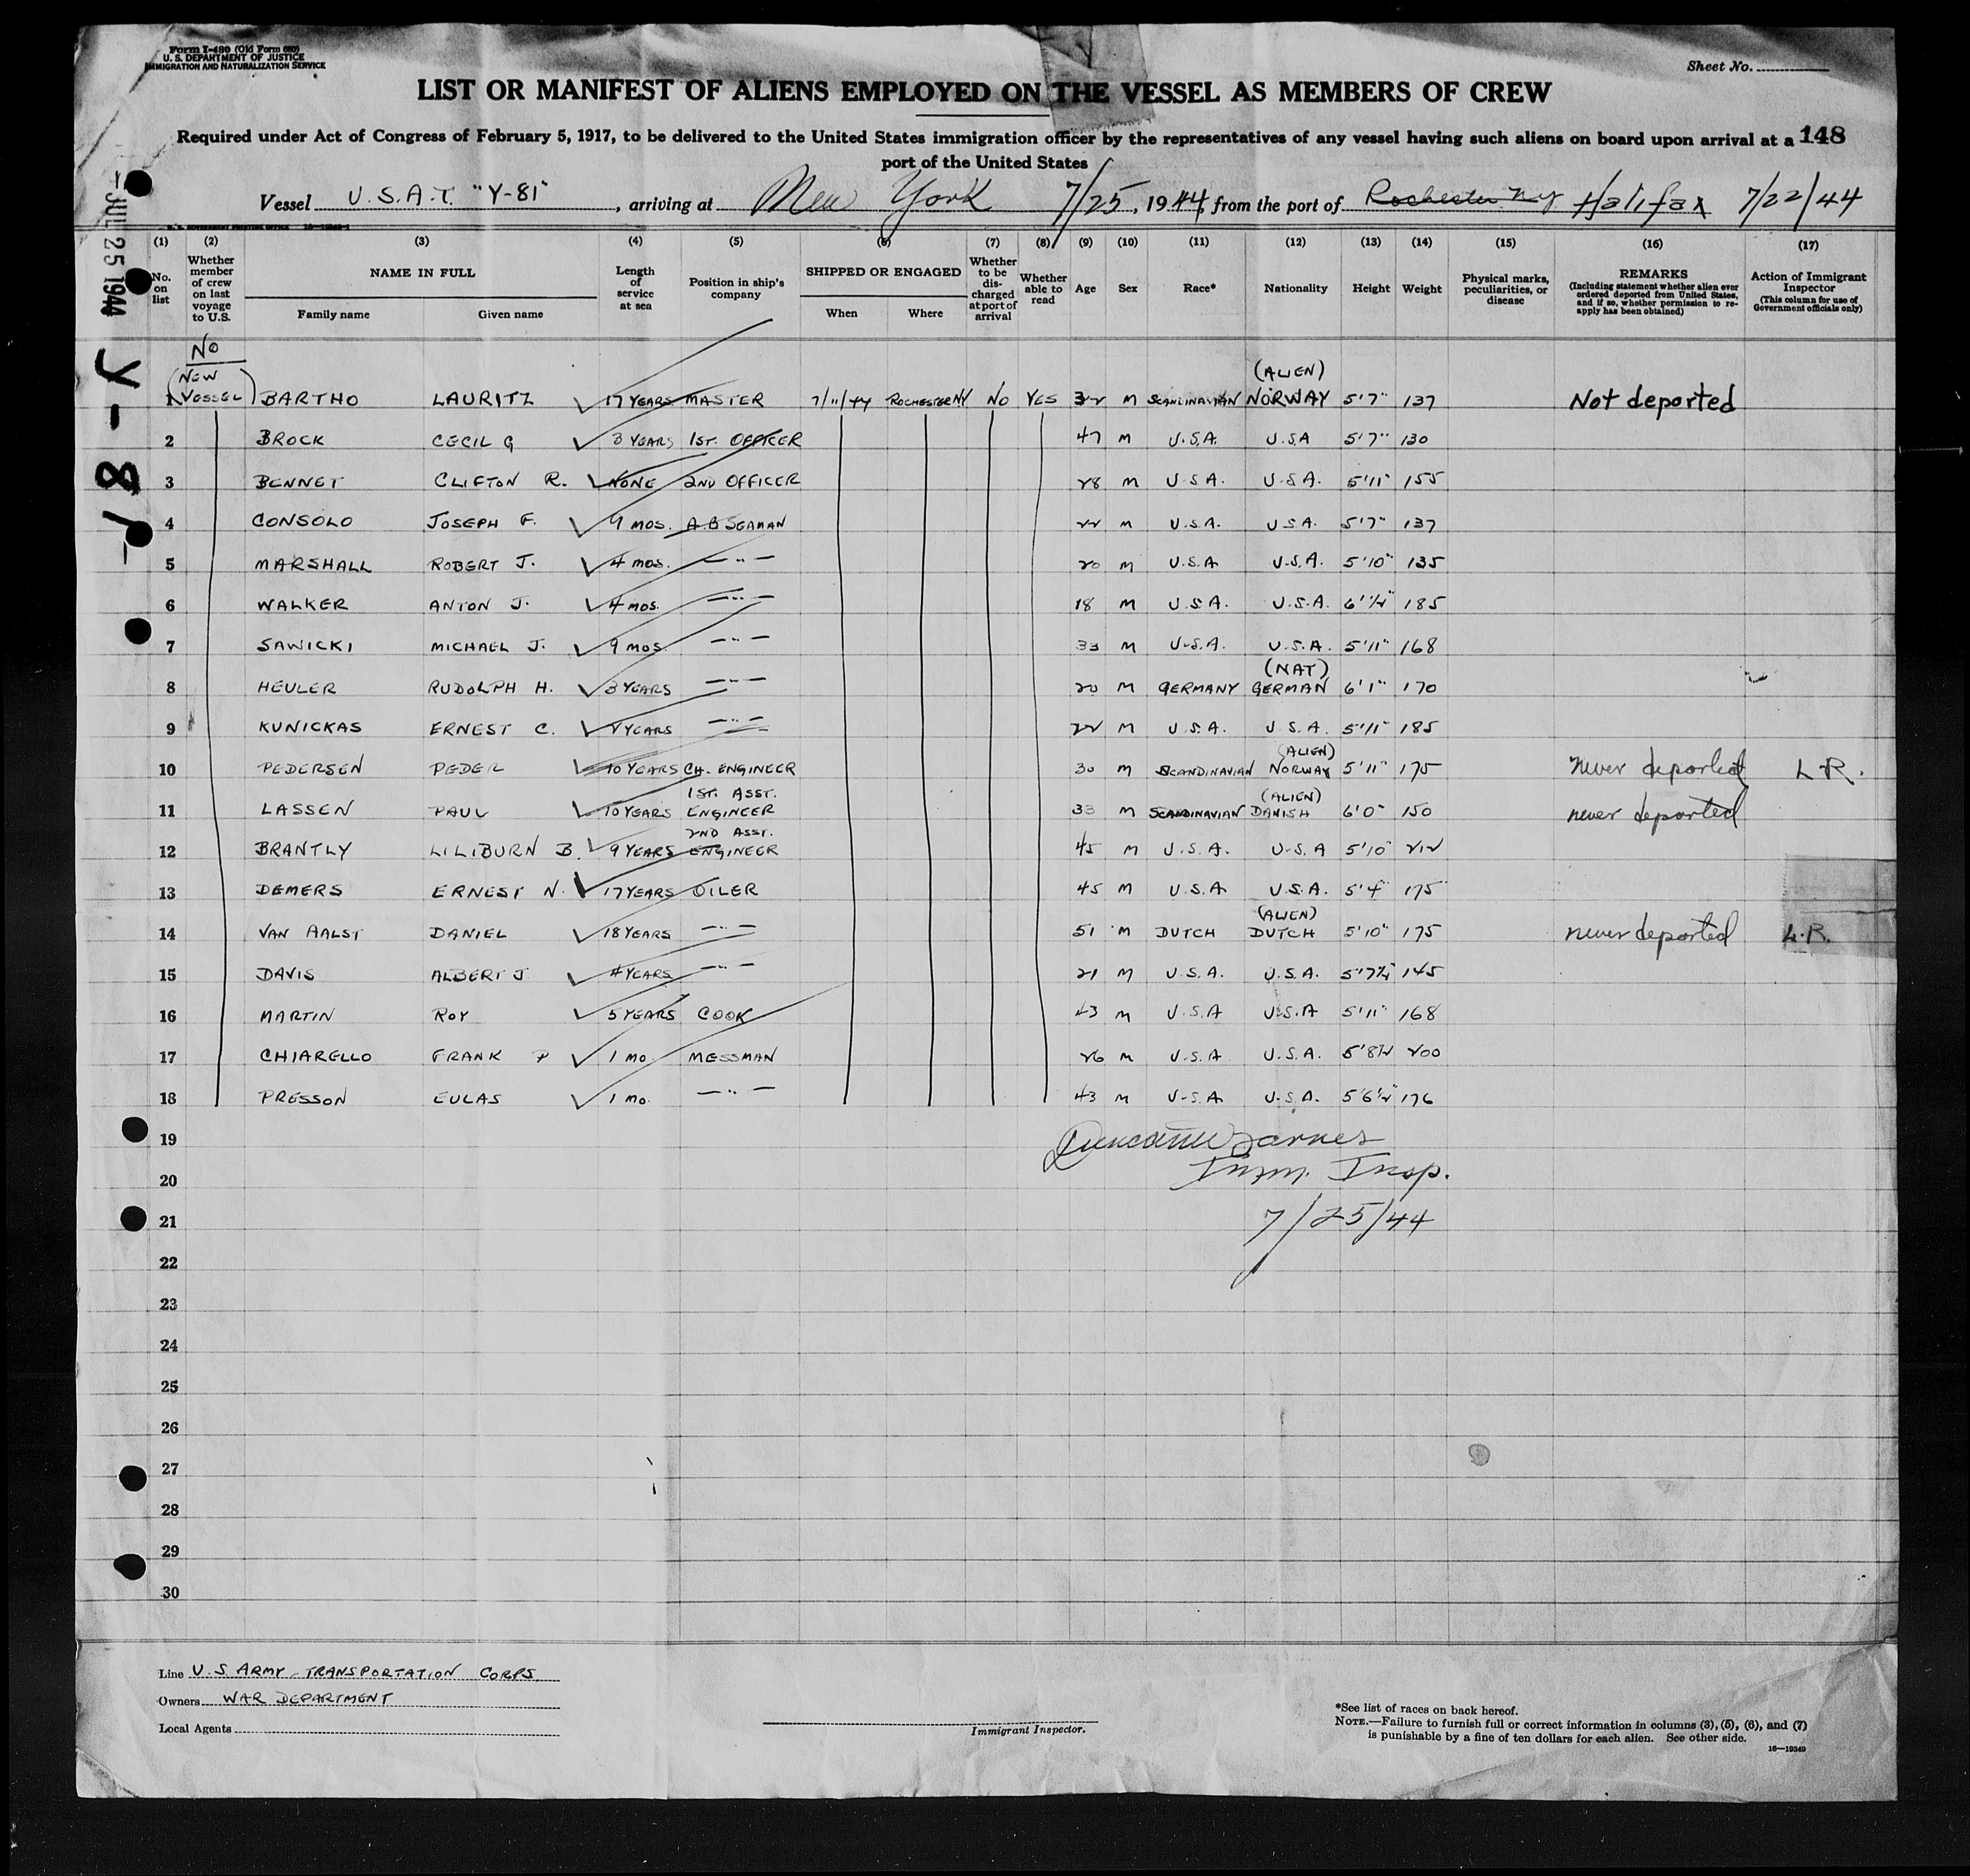 Form I-489 (Old Form 680)
U. S. DEPARTMENT OF JUSTICE
IMMIGRATION AND NATURALIZATION SERVICE
Sheet No.
LIST OR MANIFEST OF ALIENS EMPLOYED ON THE VESSEL AS MEMBERS OF CREW
Required under Act of Congress of February 5, 1917, to be delivered to the United States immigration officer by the representatives of any vessel having such aliens on board upon arrival at a 148
port of the United States
Vessel U.S.A.T. "Y-81", arriving at New York 7/25, 1944, from the port of Rochester NY Halifax 7/22/44
JUL 25 1944
Y-81-
(1) (2) (3) (4) (5) (6) (7) (8) (9) (10) (11) (12) (13) (14) (15) (16) (17)
No. on list
Whether member of crew on last voyage to U.S.
NAME IN FULL
Family name Given name
Length of service at sea
Position in ship's company
SHIPPED OR ENGAGED
When Where
Whether to be discharged at port of arrival
Whether able to read
Age Sex Race* Nationality Height Weight
Physical marks, peculiarities, or disease
REMARKS
(Including statement whether alien ever ordered deported from United States, and if so, whether permission to reapply has been obtained)
Action of Immigrant Inspector
(This column for use of Government officials only)
No
(NEW VESSEL)
(ALIEN)
1 BARTHO LAURITZ 17 YEARS MASTER 7/11/44 ROCHESTER NY NO YES 32 M SCANDINAVIAN NORWAY 5'7" 137 Not deported
2 BROCK CECIL G 3 YEARS 1ST. OFFICER 47 M U.S.A. U.S.A 5'7" 130
3 BENNET CLIFTON R. NONE 2ND OFFICER 28 M U.S.A. U.S.A. 5'11" 155
4 CONSOLO JOSEPH F. 9 MOS. A.B SEAMAN 22 M U.S.A. U.S.A. 5'7" 137
5 MARSHALL ROBERT J. 4 MOS. — " — 20 M U.S.A U.S.A. 5'10" 135
6 WALKER ANTON J. 4 MOS. — " — 18 M U.S.A. U.S.A. 6'1/2" 185
7 SAWICKI MICHAEL J. 9 MOS. — " — 33 M U.S.A. U.S.A. 5'11" 168
(NAT)
8 HEULER RUDOLPH H. 3 YEARS — " — 20 M GERMANY GERMAN 6'1" 170
9 KUNICKAS ERNEST C. YEARS — " — 22 M U.S.A. U.S.A. 5'11" 185
(ALIEN)
10 PEDERSEN PEDER 10 YEARS CH. ENGINEER 30 M SCANDINAVIAN NORWAY 5'11" 175 never deported L.R.
1ST. ASST. (ALIEN)
11 LASSEN PAUL 10 YEARS ENGINEER 33 M SCANDINAVIAN DANISH 6'0" 150 never deported
2ND ASST.
12 BRANTLY LILIBURN B. 9 YEARS ENGINEER 45 M U.S.A. U.S.A 5'10" 212
13 DEMERS ERNEST N. 17 YEARS OILER 45 M U.S.A U.S.A. 5'4" 175
(ALIEN)
14 VAN AALST DANIEL 18 YEARS — " — 51 M DUTCH DUTCH 5'10" 175 never deported L.R.
15 DAVIS ALBERT J 4 YEARS — " — 21 M U.S.A. U.S.A. 145
16 MARTIN ROY 5 YEARS COOK 43 M U.S.A U.S.A 5'11" 168
17 CHIARELLO FRANK P 1 MO. MESSMAN 26 M U.S.A U.S.A. 5'8 1/2 200
18 PRESSON EULAS 1 MO. — " — 43 M U.S.A U.S.A. 5'6 1/2" 176
19
Imm. Insp.
20
7/25/44
21
22
23
24
25
26
27
28
29
30
Line U.S. ARMY TRANSPORTATION CORPS.
Owners WAR DEPARTMENT
Local Agents
Immigrant Inspector.
*See list of races on back hereof.
NOTE.—Failure to furnish full or correct information in columns (3), (5), (6), and (7)
is punishable by a fine of ten dollars for each alien. See other side.
16—19349